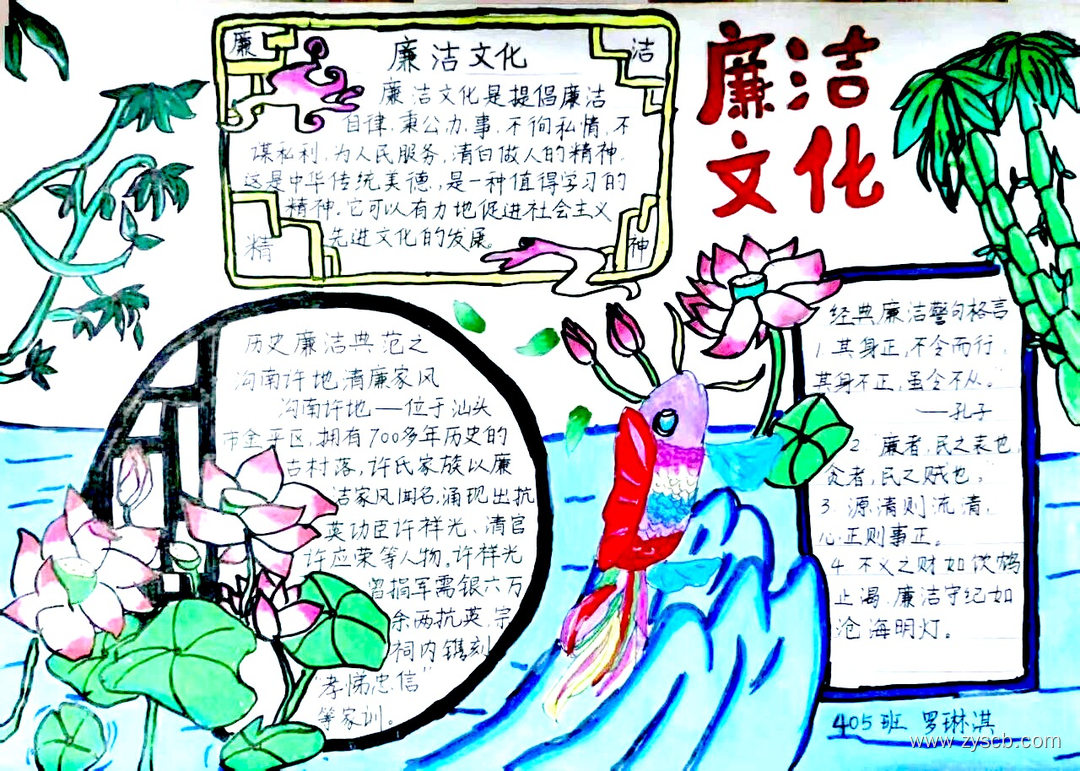 廉洁
文化
廉
洁
精
神
廉洁文化
廉洁文化是提倡廉洁
自律,秉公办事,不徇私情,不
谋私利,为人民服务,清白做人的精神。
这是中华传统美德,是一种值得学习的
精神。它可以有力地促进社会主义
先进文化的发展。
历史廉洁典范之
沟南许地,清廉家风
沟南许地——位于汕头
市金平区,拥有700多年历史的
古村落,许氏家族以廉
洁家风闻名,涌现出抗
英功臣许祥光、清官
许应荣等人物。许祥光
曾捐军需银六万
余两抗英,宗
祠内镌刻
“孝悌忠信”
等家训。
经典廉洁警句格言
1.其身正,不令而行,
其身不正,虽令不从。”
——孔子
2.廉者,民之表也,
贪者,民之贼也。
3.源清则流清,
心正则事正。
4.不义之财如饮鸩
止渴,廉洁守纪如
沧海明灯。
405班 罗琳淇
www.zyscb.com